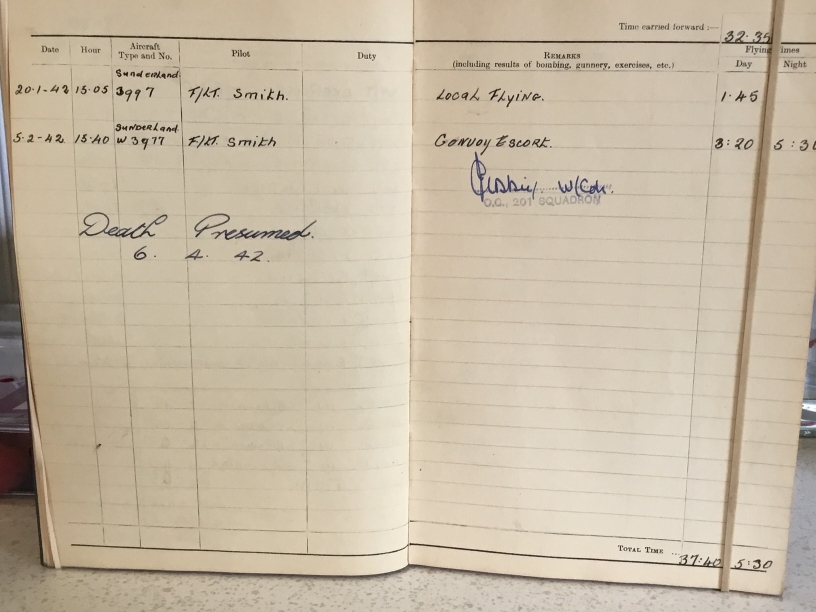 Time carried forward :— 32·35
Date Hour Aircraft Type and No. Pilot Duty REMARKS (including results of bombing, gunnery, exercises, etc.) Flying Times Day Night
Sunderland
20·1-42 15·05 3997 F/LT. Smith. LOCAL FLYING. 1·45
SUNDERLand
5·2-42 15·40 W3977 F/LT. Smith CONVOY ESCORT. 3:20 5:30
W/Cdr.
O.C., 201 SQUADRON
Death Presumed.
6. 4. 42.
TOTAL TIME 37:40 5:30